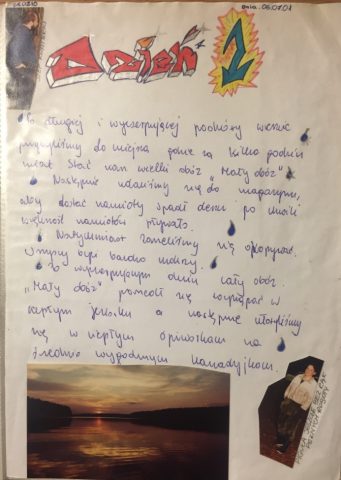 dnia. 06.07.01
Dzień 1
Po długiej i wyczerpującej podróży wreszcie
przybyliśmy do miejsca gdzie za kilka godzin
miał stać nam wielki obóz „Mały obóz”.
Następnie udaliśmy się do magazynu,
aby dostać namioty spadł deszcz po chwili
większość namiotów pływało.
Natychmiast zaczęliśmy się okopywać.
Wszyscy byli bardzo mokrzy.
Po wyczerpującym dniu cały obóz
„Mały obóz” poszedł się wykąpać w
ciepłym jeziorku a następnie utonęliśmy
się w ciepłym śpiworkach na
średnio wygodnym kanadyjkach.